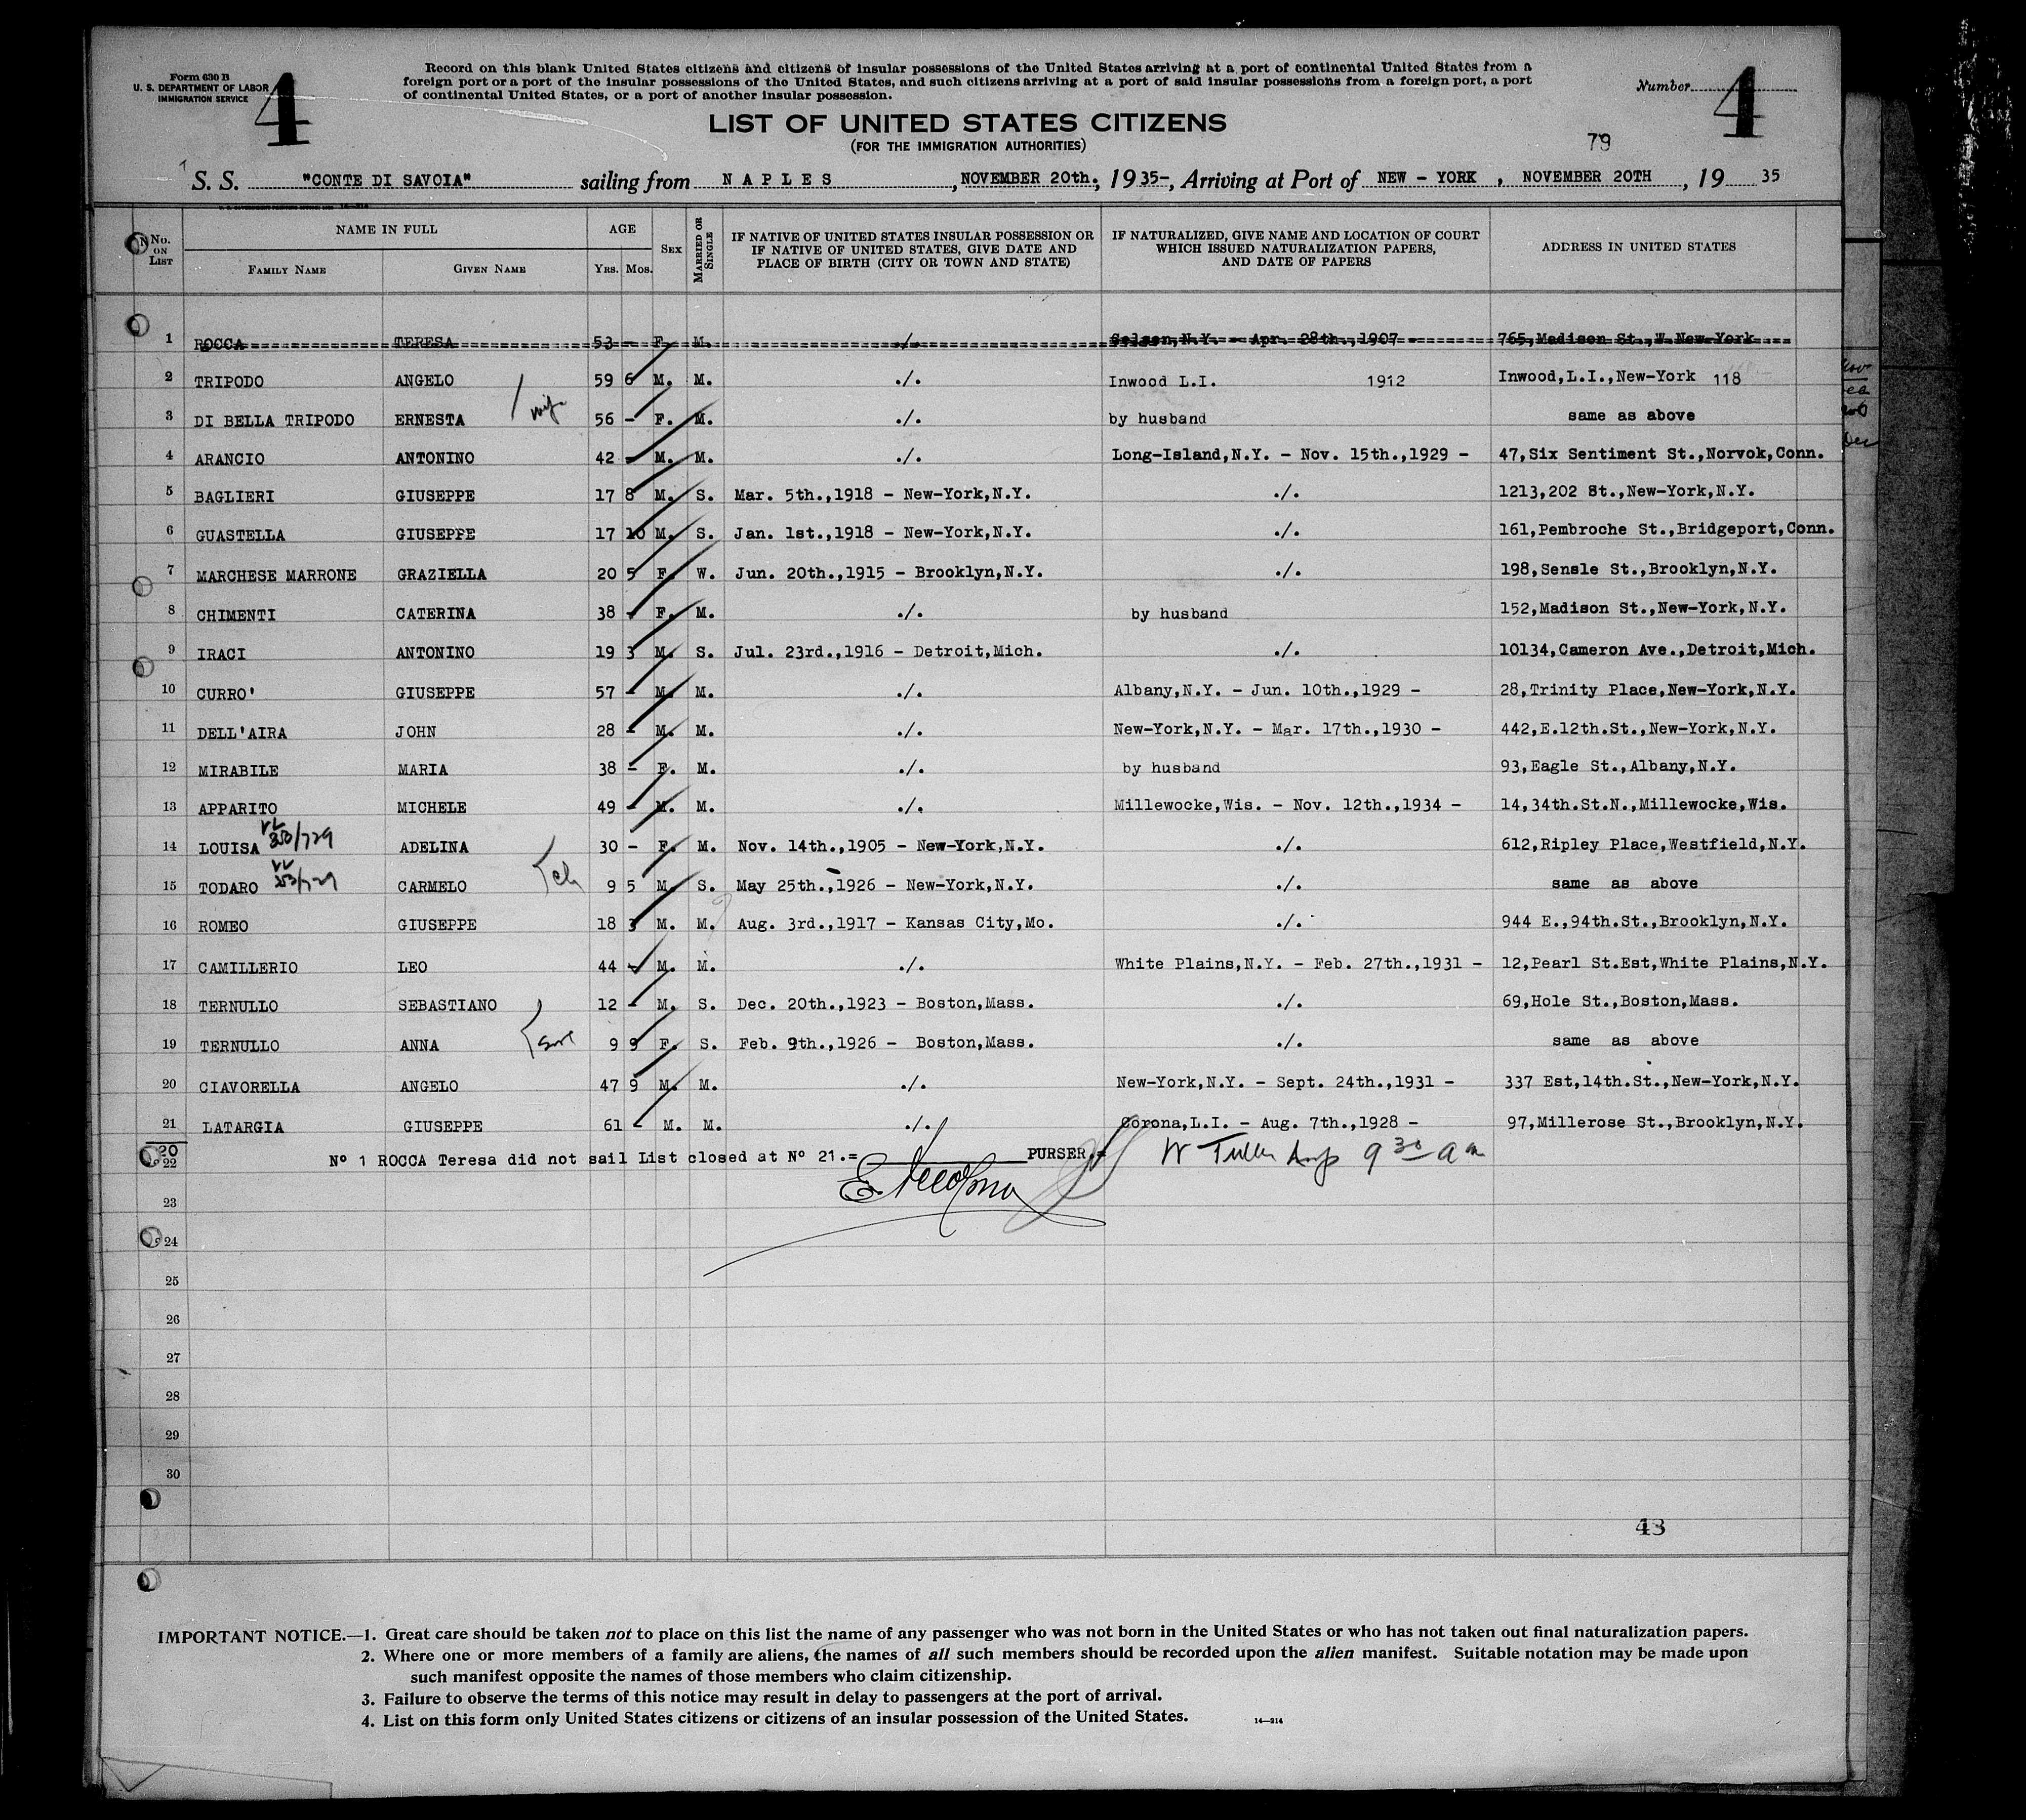 Form 630 B
U. S. DEPARTMENT OF LABOR
IMMIGRATION SERVICE
4
Record on this blank United States citizens and citizens of insular possessions of the United States arriving at a port of continental United States from a
foreign port or a port of the insular possessions of the United States, and such citizens arriving at a port of said insular possessions from a foreign port, a port
of continental United States, or a port of another insular possession.
Number 4
LIST OF UNITED STATES CITIZENS
(FOR THE IMMIGRATION AUTHORITIES)
79
S. S. "CONTE DI SAVOIA" sailing from NAPLES, NOVEMBER 20th., 1935-, Arriving at Port of NEW - YORK, NOVEMBER 20TH, 19 35
No. on List
NAME IN FULL
Family Name Given Name
AGE
Yrs. Mos.
Sex
Married or Single
IF NATIVE OF UNITED STATES INSULAR POSSESSION OR
IF NATIVE OF UNITED STATES, GIVE DATE AND
PLACE OF BIRTH (CITY OR TOWN AND STATE)
IF NATURALIZED, GIVE NAME AND LOCATION OF COURT
WHICH ISSUED NATURALIZATION PAPERS,
AND DATE OF PAPERS
ADDRESS IN UNITED STATES
1 ROCCA TERESA 53 - F. M. ./. N.Y. - Apr. 28th.,1907 - 765,Madison St.,W.New-York
2 TRIPODO ANGELO 59 6 M. M. ./. Inwood L.I. 1912 Inwood,L.I.,New-York 118
wife
3 DI BELLA TRIPODO ERNESTA 56 - F. M. ./. by husband same as above
4 ARANCIO ANTONINO 42 - M. M. ./. Long-Island,N.Y. - Nov. 15th.,1929 - 47,Six Sentiment St.,Norvok,Conn.
5 BAGLIERI GIUSEPPE 17 8 M. S. Mar. 5th.,1918 - New-York,N.Y. ./. 1213,202 St.,New-York,N.Y.
6 GUASTELLA GIUSEPPE 17 10 M. S. Jan. 1st.,1918 - New-York,N.Y. ./. 161,Pembroche St.,Bridgeport,Conn.
7 MARCHESE MARRONE GRAZIELLA 20 5 F. W. Jun. 20th.,1915 - Brooklyn,N.Y. ./. 198,Sensle St.,Brooklyn,N.Y.
8 CHIMENTI CATERINA 38 - F. M. ./. by husband 152,Madison St.,New-York,N.Y.
9 IRACI ANTONINO 19 3 M. S. Jul. 23rd.,1916 - Detroit,Mich. ./. 10134,Cameron Ave.,Detroit,Mich.
10 CURRO' GIUSEPPE 57 - M. M. ./. Albany,N.Y. - Jun. 10th.,1929 - 28,Trinity Place,New-York,N.Y.
11 DELL'AIRA JOHN 28 - M. M. ./. New-York,N.Y. - Mar. 17th.,1930 - 442,E.12th.St.,New-York,N.Y.
12 MIRABILE MARIA 38 - F. M. ./. by husband 93,Eagle St.,Albany,N.Y.
13 APPARITO MICHELE 49 - M. M. ./. Millewocke,Wis. - Nov. 12th.,1934 - 14,34th.St.N.,Millewocke,Wis.
14 LOUISA ADELINA 30 - F. M. Nov. 14th.,1905 - New-York,N.Y. ./. 612,Ripley Place,Westfield,N.Y.
ch
15 TODARO CARMELO 9 5 M. S. May 25th.,1926 - New-York,N.Y. ./. same as above
16 ROMEO GIUSEPPE 18 3 M. M. Aug. 3rd.,1917 - Kansas City,Mo. ./. 944 E.,94th.St.,Brooklyn,N.Y.
17 CAMILLERIO LEO 44 - M. M. ./. White Plains,N.Y. - Feb. 27th.,1931 - 12,Pearl St.Est,White Plains,N.Y.
18 TERNULLO SEBASTIANO 12 - M. S. Dec. 20th.,1923 - Boston,Mass. ./. 69,Hole St.,Boston,Mass.
19 TERNULLO ANNA 9 9 F. S. Feb. 9th.,1926 - Boston,Mass. ./. same as above
20 CIAVORELLA ANGELO 47 9 M. M. ./. New-York,N.Y. - Sept. 24th.,1931 - 337 Est,14th.St.,New-York,N.Y.
21 LATARGIA GIUSEPPE 61 - M. M. ./. Corona,L.I. - Aug. 7th.,1928 - 97,Millerose St.,Brooklyn,N.Y.
20
22 Nº 1 ROCCA Teresa did not sail List closed at Nº 21.= PURSER.= 9 30 am
23
24
25
26
27
28
29
30
43
IMPORTANT NOTICE.—1. Great care should be taken not to place on this list the name of any passenger who was not born in the United States or who has not taken out final naturalization papers.
2. Where one or more members of a family are aliens, the names of all such members should be recorded upon the alien manifest. Suitable notation may be made upon
such manifest opposite the names of those members who claim citizenship.
3. Failure to observe the terms of this notice may result in delay to passengers at the port of arrival.
4. List on this form only United States citizens or citizens of an insular possession of the United States.
14—214